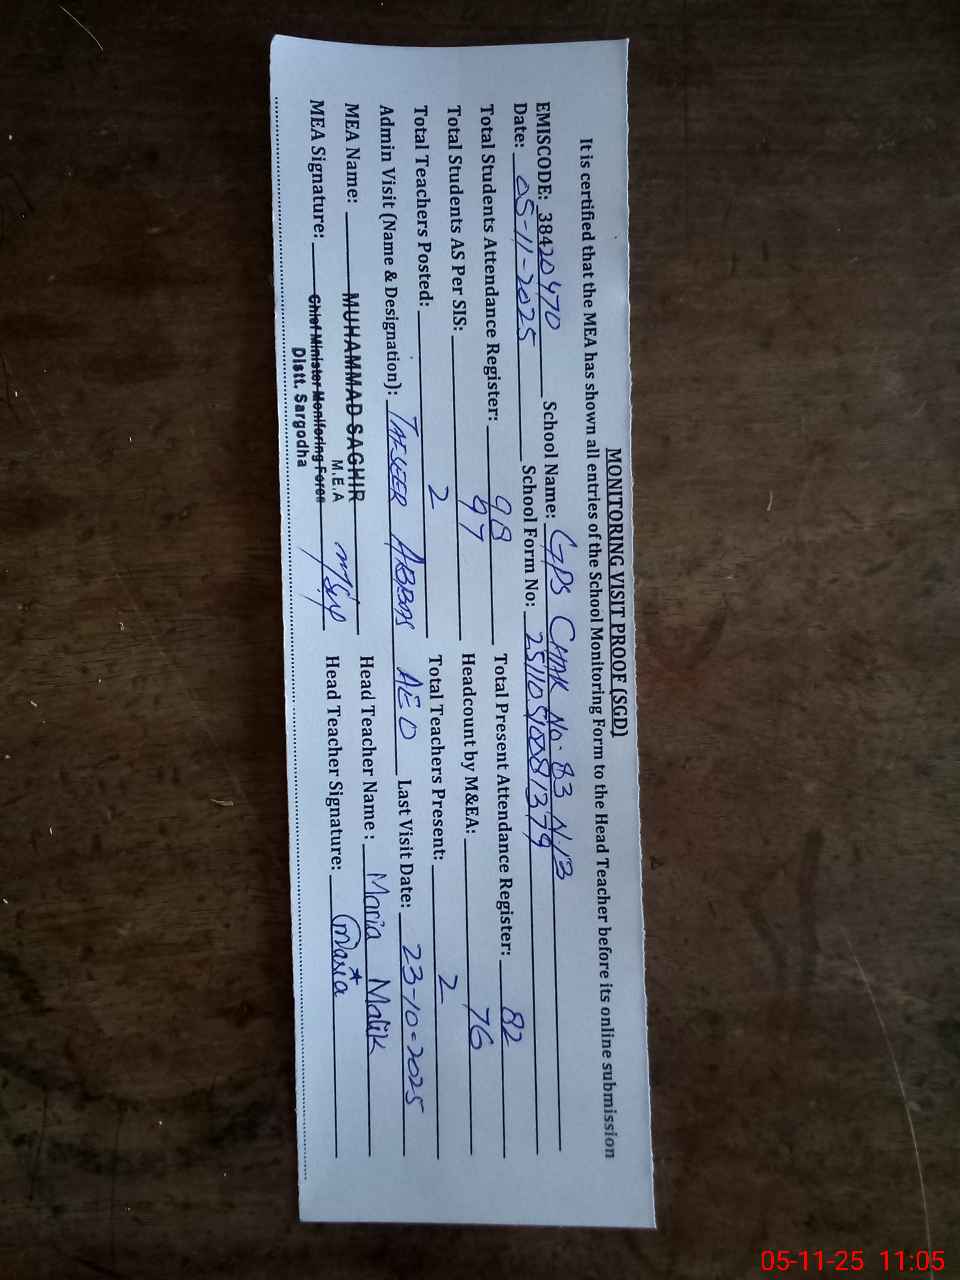 MONITORING VISIT PROOF (SGD)
It is certified that the MEA has shown all entries of the School Monitoring Form to the Head Teacher before its online submission
EMISCODE: 38420470 School Name: GPS CHAK No. 83 N/B
Date: 05-11-2025 School Form No: 251105/0081379
Total Students Attendance Register: 98 Total Present Attendance Register: 82
Total Students AS Per SIS: 97 Headcount by M&EA: 76
Total Teachers Posted: 2 Total Teachers Present: 2
Admin Visit (Name & Designation): TAFSEER ABBAS AEO Last Visit Date: 23-10-2025
MEA Name: MUHAMMAD SAGHIR Head Teacher Name : Maria Malik
M.E.A
MEA Signature: Chief Minister Monitoring Force Head Teacher Signature: Maria
Distt. Sargodha
05-11-25 11:05